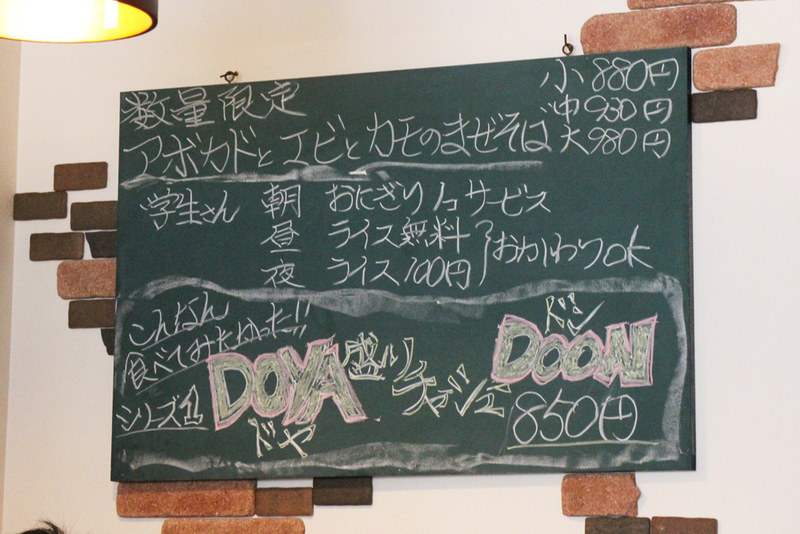 数量限定
小 880円
中 930円
アボカドとエビとカモのまぜそば 大 980円
学生さん 朝 おにぎり1コサービス
昼 ライス無料
夜 ライス100円 おかわりOK
こんなん
食べてみたかった!!
シリーズ1
DOYA
ドヤ
盛り
チャレンジ
ドーン
DOON
850円